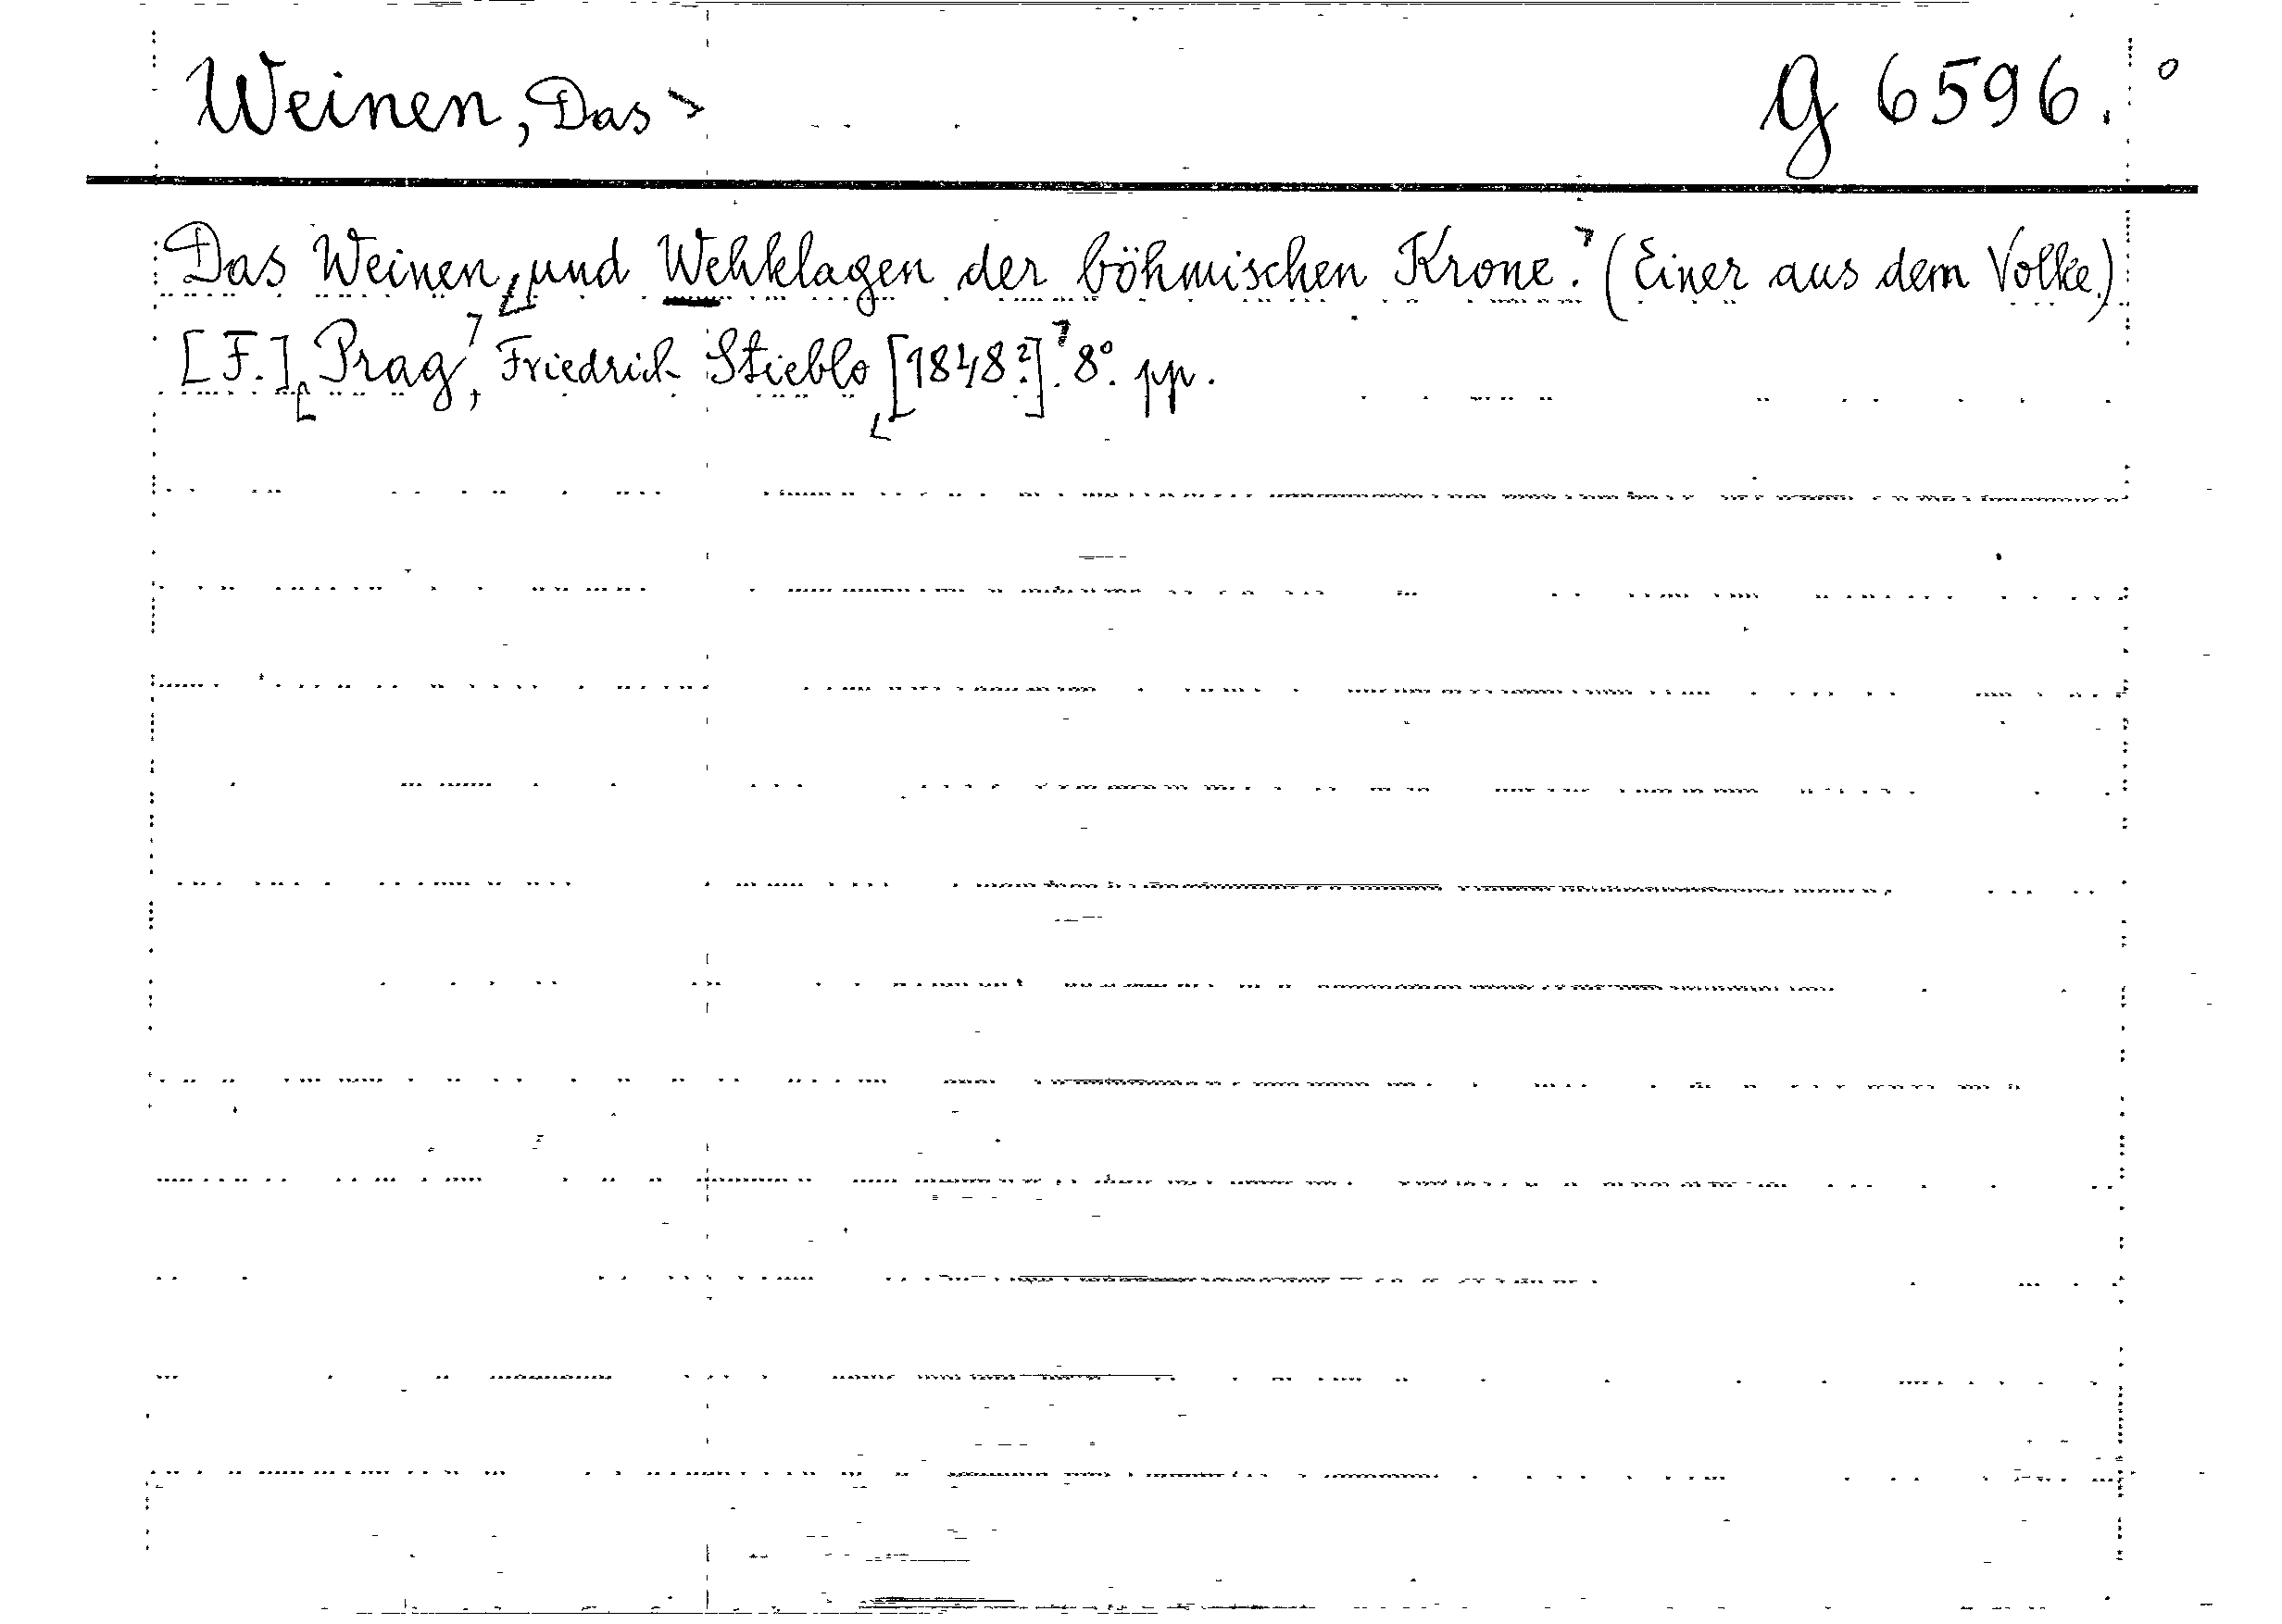 Weinen, Das G 6596.°
Das Weinen und Wehklagen der böhmischen Krone. (Einer aus dem Volke.)
[F.] Prag, Friedrich Stieblo [1848?]. 8°. pp.